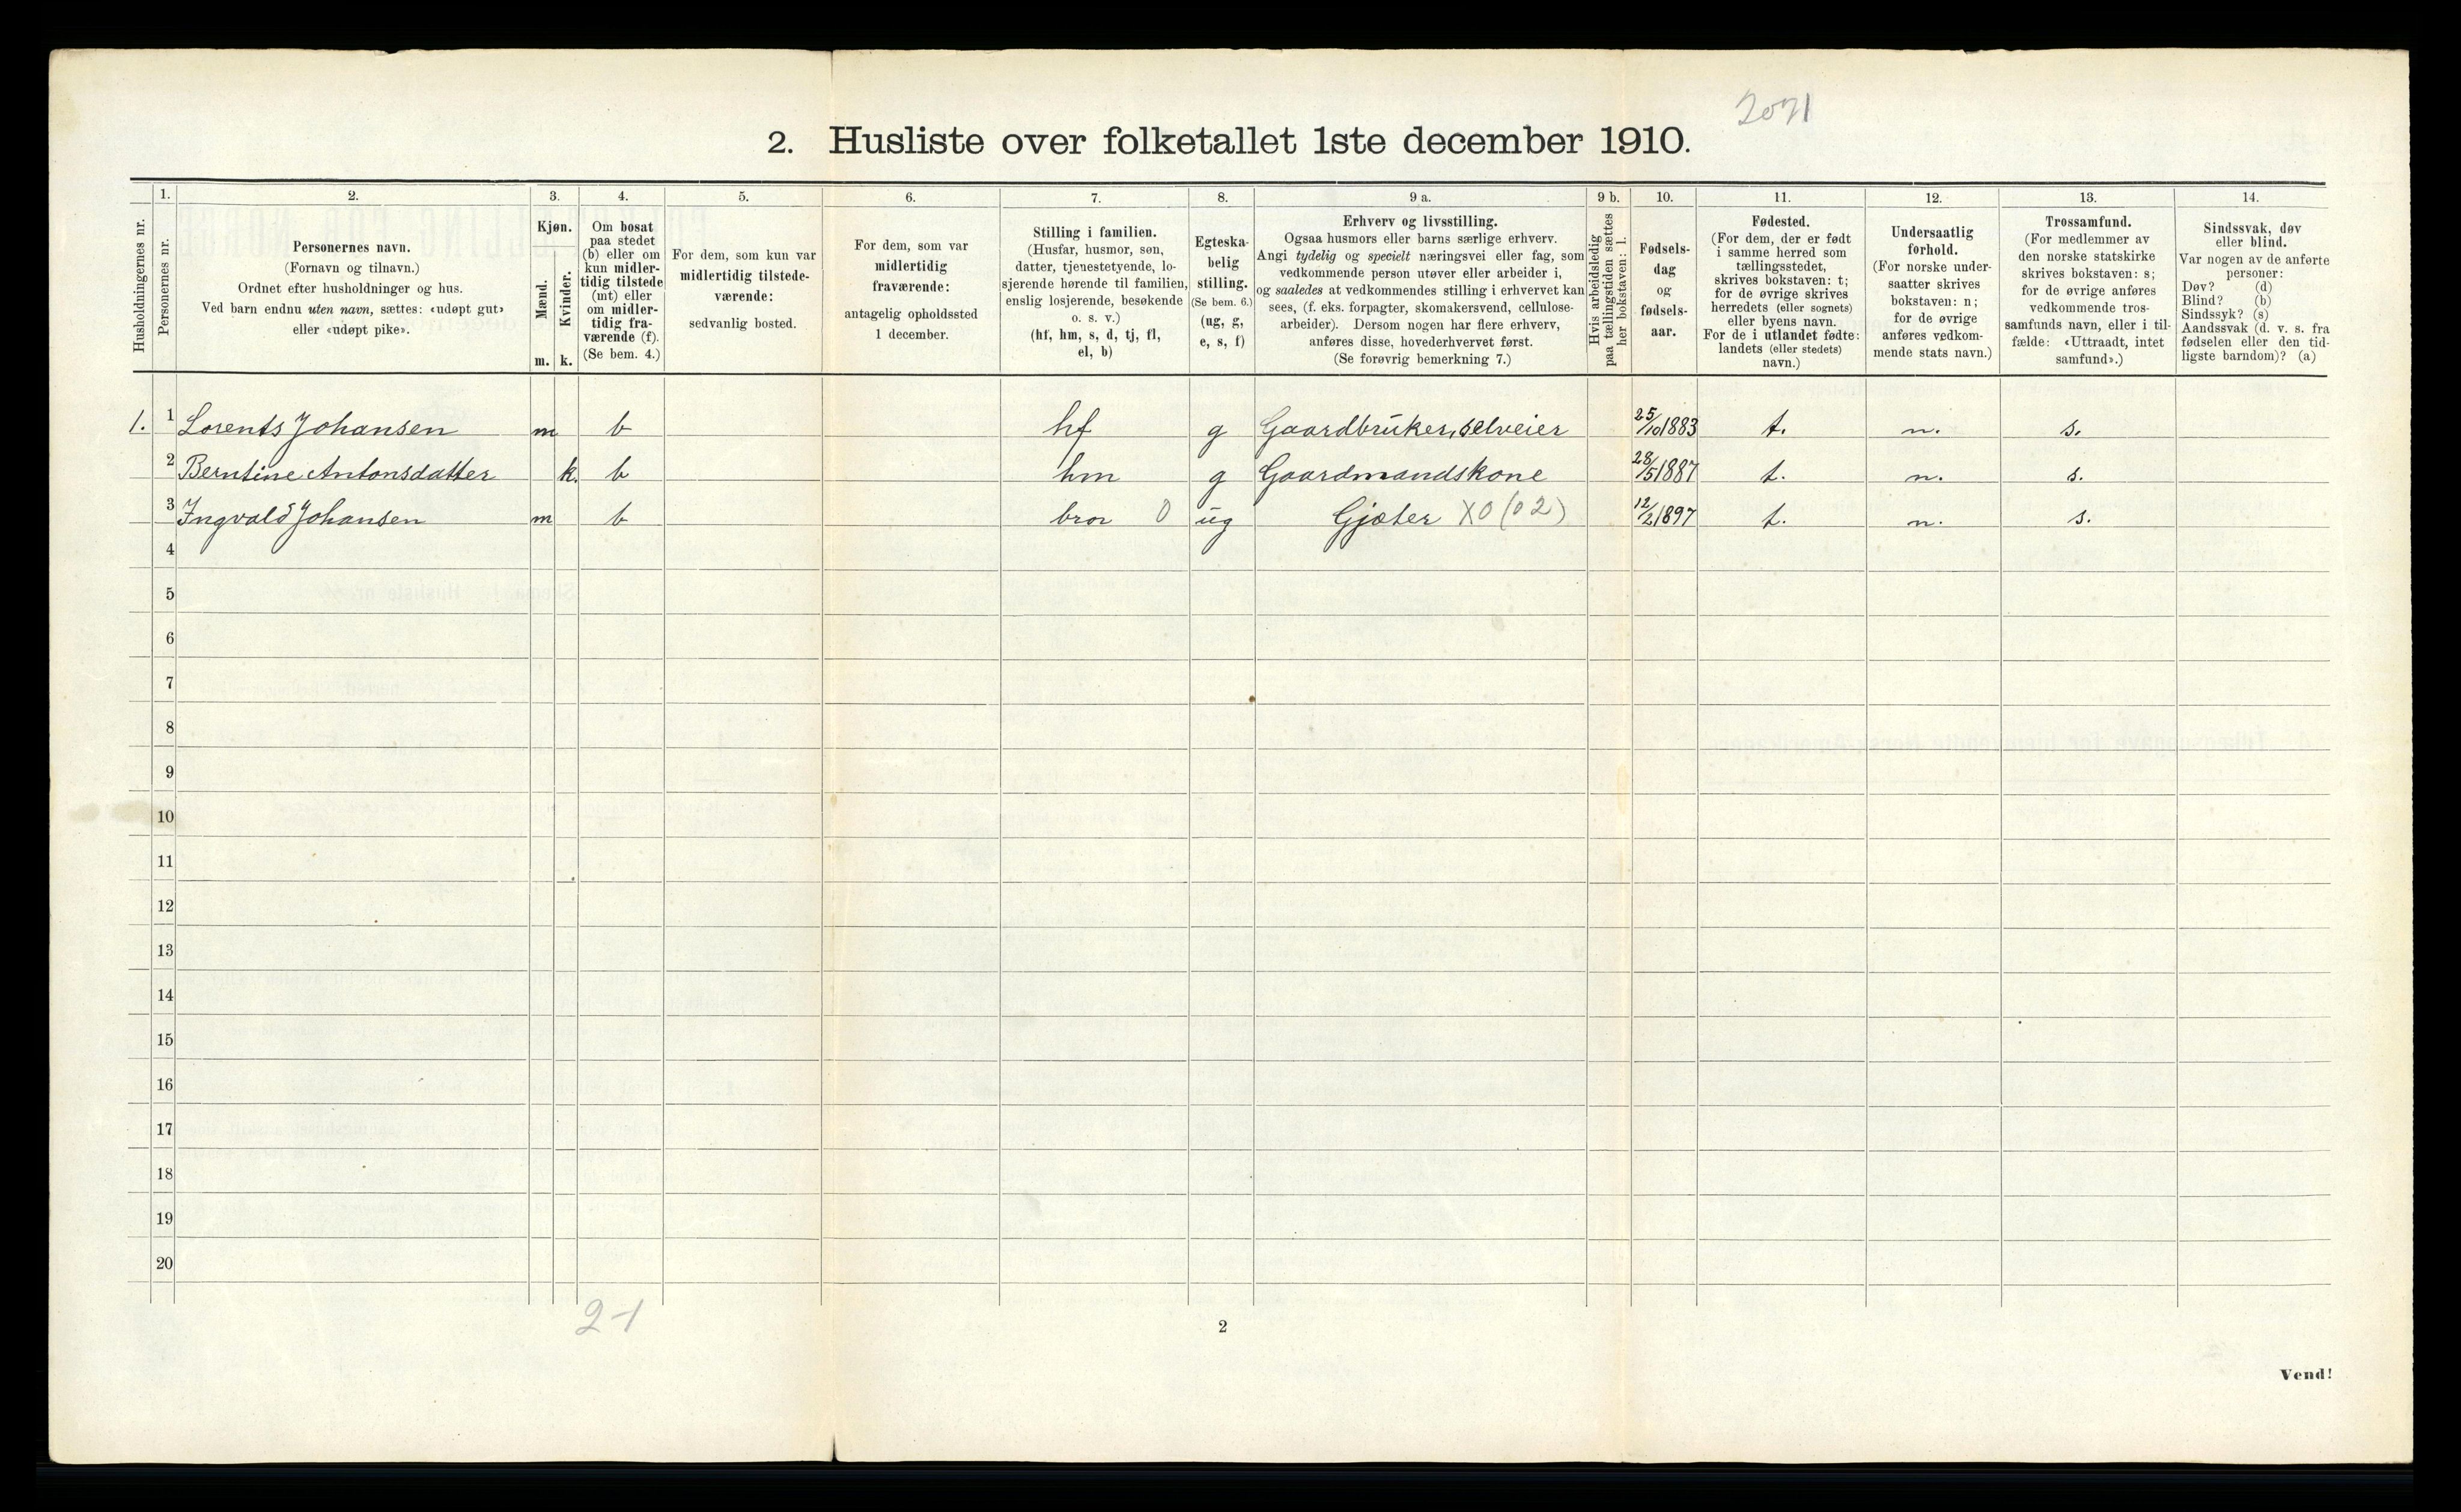 2071
2. Husliste over folketallet 1ste december 1910.
Husholdningernes nr.
1.
Personernes nr.
2.
Personernes navn.
(Fornavn og tilnavn.)
Ordnet efter husholdninger og hus.
Ved barn endnu uten navn, sættes: «udøpt gut»
eller «udøpt pike».
3.
Kjøn.
Mænd.
Kvinder.
m. k.
4.
Om bosat
paa stedet
(b) eller om
kun midler-
tidig tilstede
(mt) eller
om midler-
tidig fra-
værende (f).
(Se bem. 4.)
5.
For dem, som kun var
midlertidig tilstede-
værende:
sedvanlig bosted.
6.
For dem, som var
midlertidig
fraværende:
antagelig opholdssted
1 december.
7.
Stilling i familien.
(Husfar, husmor, søn,
datter, tjenestetyende, lo-
sjerende hørende til familien,
enslig losjerende, besøkende
o. s. v.)
(hf, hm, s, d, tj, fl,
el, b)
8.
Egteska-
belig
stilling.
(Se bem. 6.)
(ug, g,
e, s, f)
9 a.
Erhverv og livsstilling.
Ogsaa husmors eller barns særlige erhverv.
Angi tydelig og specielt næringsvei eller fag, som
vedkommende person utøver eller arbeider i,
og saaledes at vedkommendes stilling i erhvervet kan
sees, (f. eks. forpagter, skomakersvend, cellulose-
arbeider). Dersom nogen har flere erhverv,
anføres disse, hovederhvervet først.
(Se forøvrig bemerkning 7.)
9 b.
Hvis arbeidsledig
paa tællingstiden sættes
her bokstaven: l.
10.
Fødsels-
dag
og
fødsels-
aar.
11.
Fødested.
(For dem, der er født
i samme herred som
tællingsstedet,
skrives bokstaven: t;
for de øvrige skrives
herredets (eller sognets)
eller byens navn.
For de i utlandet fødte:
landets (eller stedets)
navn.)
12.
Undersaatlig
forhold.
(For norske under-
saatter skrives
bokstaven: n;
for de øvrige
anføres vedkom-
mende stats navn.)
13.
Trossamfund.
(For medlemmer av
den norske statskirke
skrives bokstaven: s;
for de øvrige anføres
vedkommende tros-
samfunds navn, eller i til-
fælde: «Uttraadt, intet
samfund».)
14.
Sindssvak, døv
eller blind.
Var nogen av de anførte
personer:
Døv? (d)
Blind? (b)
Sindssyk? (s)
Aandssvak (d. v. s. fra
fødselen eller den tid-
ligste barndom)? (a)
1. 1 Lorents Johansen m b hf g Gaardbruker, selveier 25/10 1883 t. n. s.
2 Berntine Antonsdatter k. b hm g Gaardmandskone 28/5 1887 t. n. s.
3 Ingvald Johansen m b bror 0 ug Gjæter X0 (02) 12/2 1897 t. n. s.
4
5
6
7
8
9
10
11
12
13
14
15
16
17
18
19
20
2-1
2
Vend!